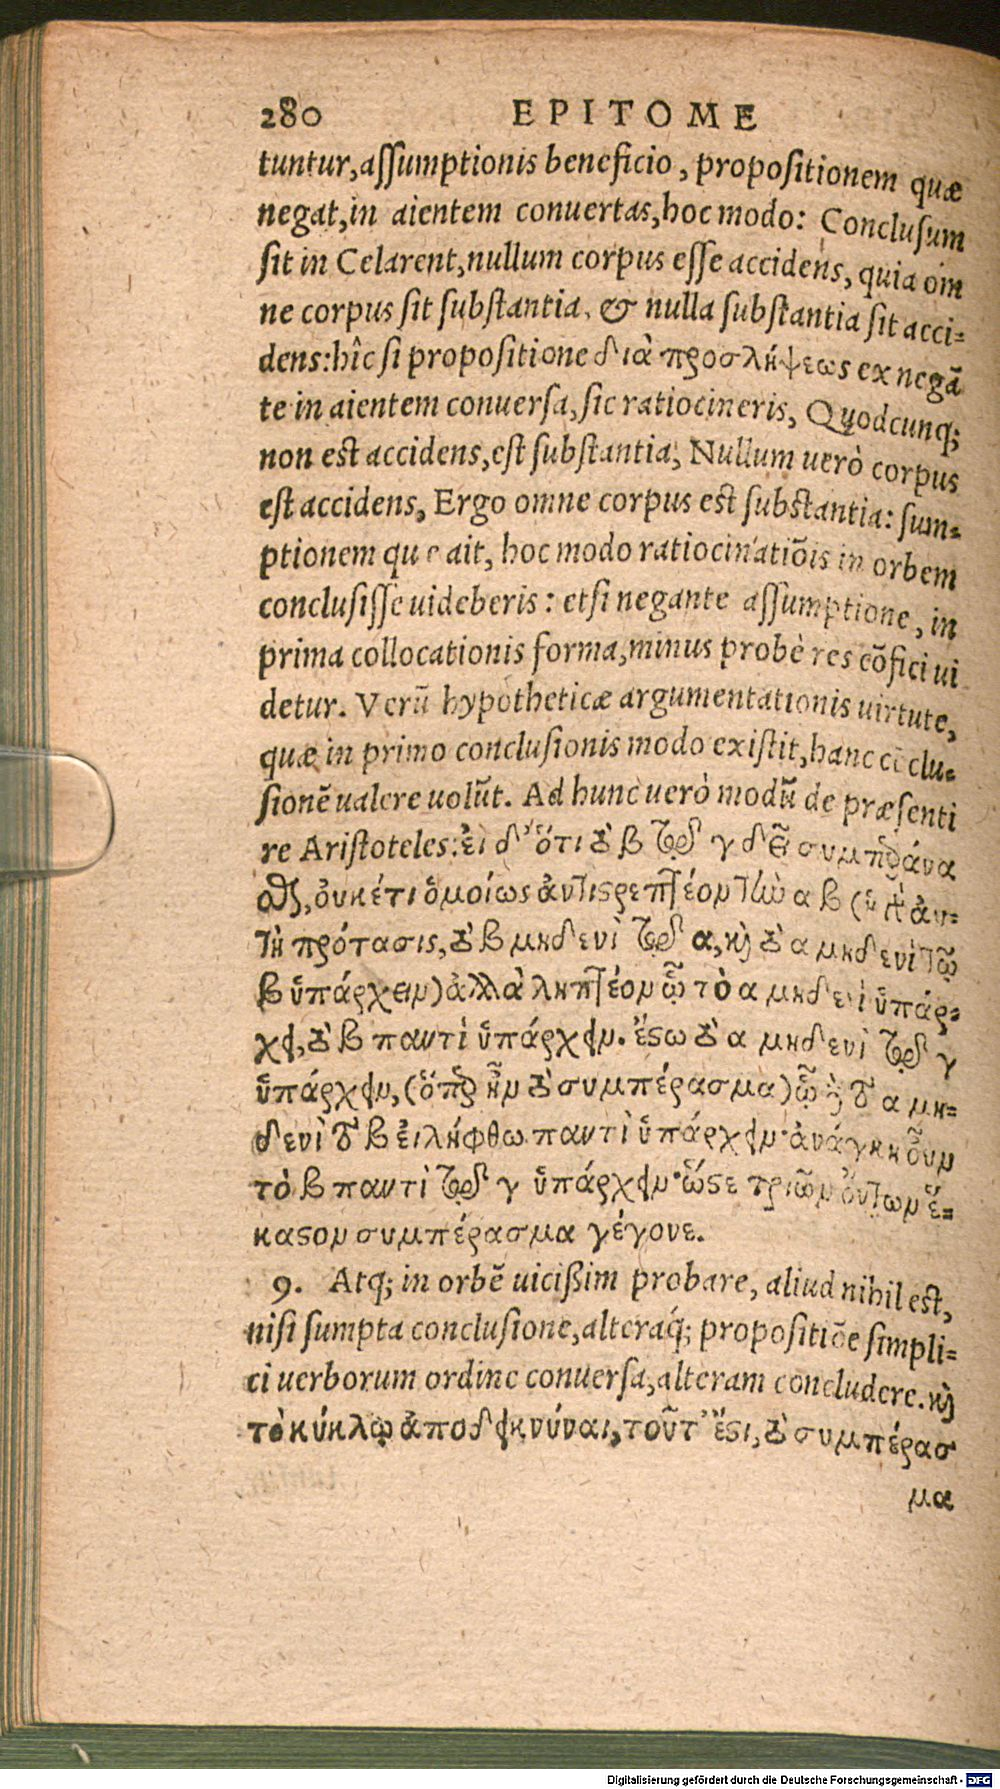 280 EPITOME
tuntur, assumptionis beneficio, propositionem quæ
negat, in aientem conuertas, hoc modo: Conclusum
sit in Celarent, nullum corpus esse accidens, quia om
ne corpus sit substantia, & nulla substantia sit acci-
dens: hîc si propositione διὰ προσλήψεως ex negā
te in aientem conuersa, sic ratiocineris, Quodcunq;
non est accidens, est substantia; Nullum uerò corpus
est accidens, Ergo omne corpus est substantia: sum-
ptionem quæ ait, hoc modo ratiocinatiōis in orbem
conclusisse uideberis: etsi negante assumptione, in
prima collocationis forma, minus probè res cōfici ui
detur. Verū hypotheticæ argumentationis uirtute,
quæ in primo conclusionis modo existit, hanc cōclu-
sionē ualere uolūt. Ad hunc uerò modū de præsenti
re Aristoteles: εἰ δ' ὅτι τὸ β τῷ γ δεῖ συμπεράνα
σθαι, οὐκέτι ὁμοίως ἀντιστρεπτέον τὴν α β (ἡ γὰρ ἀυ-
τὴ πρότασις, τὸ β μηδενὶ τῷ α, καὶ τὸ α μηδενὶ τῷ
β ὑπάρχειν) ἀλλὰ ληπτέον ᾧ τὸ α μηδενὶ ὑπάρ-
χει, τὸ β παντὶ ὑπάρχειν. ἔστω τὸ α μηδενὶ τῷ γ
ὑπάρχειν, (ὅπερ ἦν τὸ συμπέρασμα) ᾧ δὲ τὸ α μη-
δενὶ τὸ β εἰλήφθω παντὶ ὑπάρχειν· ἀνάγκη οὖν
τὸ β παντὶ τῷ γ ὑπάρχειν· ὥστε τριῶν ὄντων ἕ-
καστον συμπέρασμα γέγονε.
9. Atq; in orbē uicißim probare, aliud nihil est,
nisi sumpta conclusione, alteraq́; propositiōe simpli-
ci uerborum ordine conuersa, alteram concludere. καὶ
τὸ κύκλῳ ἀποδεικνύναι, τοῦτ' ἔστι, τὸ συμπέρασ
μα
Digitalisierung gefördert durch die Deutsche Forschungsgemeinschaft - DFG